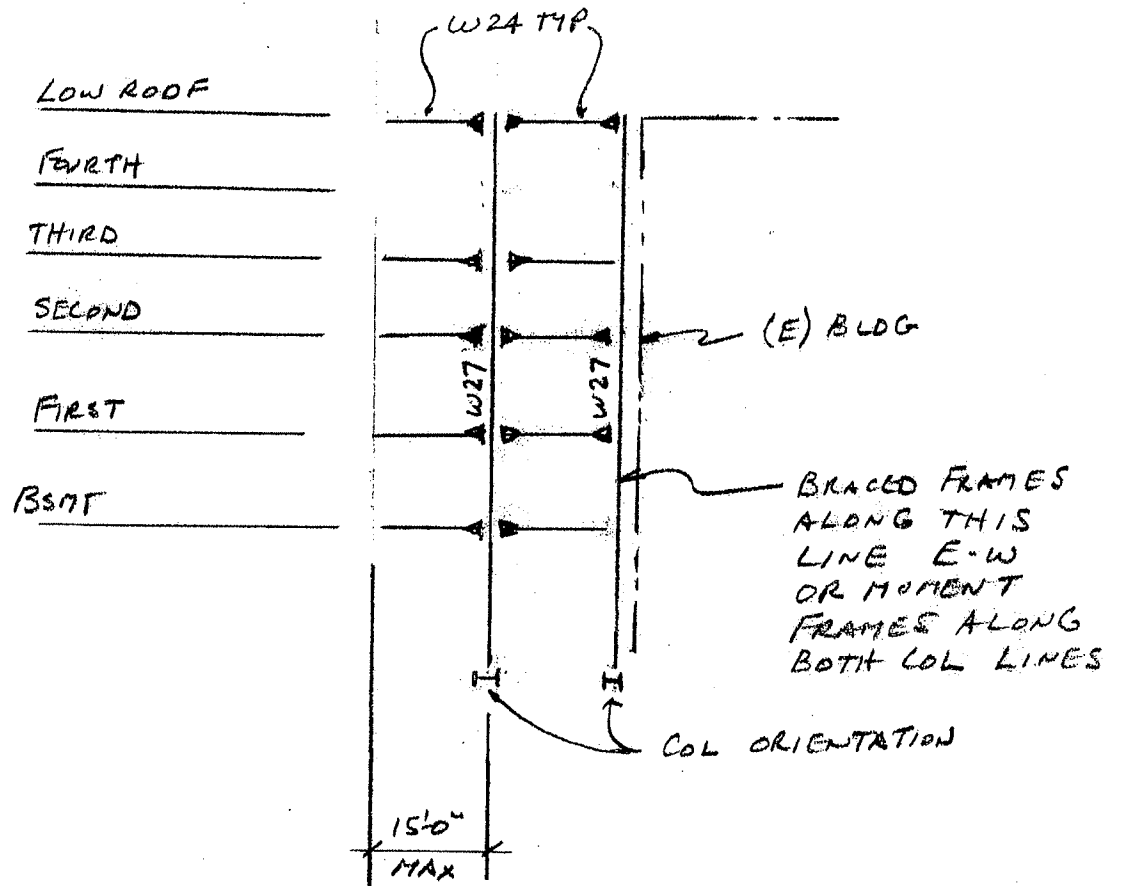 W24 TYP.
LOW ROOF
FOURTH
THIRD
SECOND
(E) BLDG
W27
W27
FIRST
BSMT
BRACED FRAMES
ALONG THIS
LINE E-W
OR MOMENT
FRAMES ALONG
BOTH COL LINES
COL ORIENTATION
15'-0"
MAX